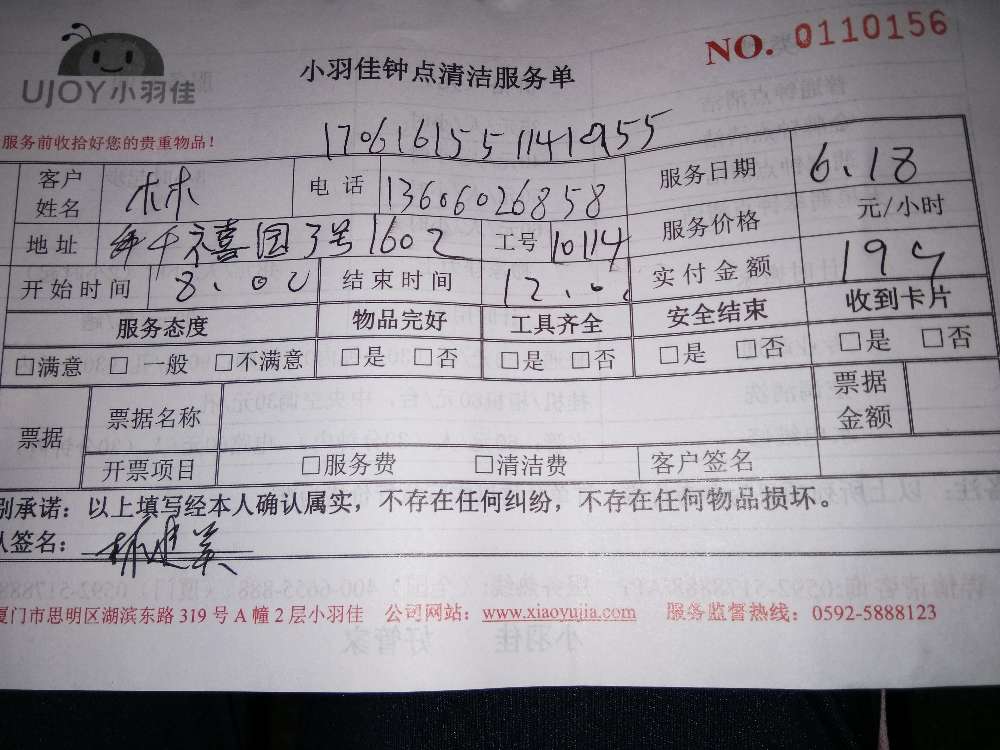 UJOY小羽佳
小羽佳钟点清洁服务单
NO. 0110156
服务前收拾好您的贵重物品！
客户姓名 电话 13606026858 服务日期 6.18
地址 千禧园3号1602 工号 10114 服务价格 元/小时
开始时间 8.00 结束时间 12.00 实付金额
服务态度 物品完好 工具齐全 安全结束 收到卡片
□满意 □一般 □不满意 □是 □否 □是 □否 □是 □否 □是 □否
票据 票据名称 票据金额
开票项目 □服务费 □清洁费 客户签名
别承诺：以上填写经本人确认属实，不存在任何纠纷，不存在任何物品损坏。
签名：
厦门市思明区湖滨东路319号A幢2层小羽佳 公司网站：www.xiaoyujia.com 服务监督热线：0592-5888123